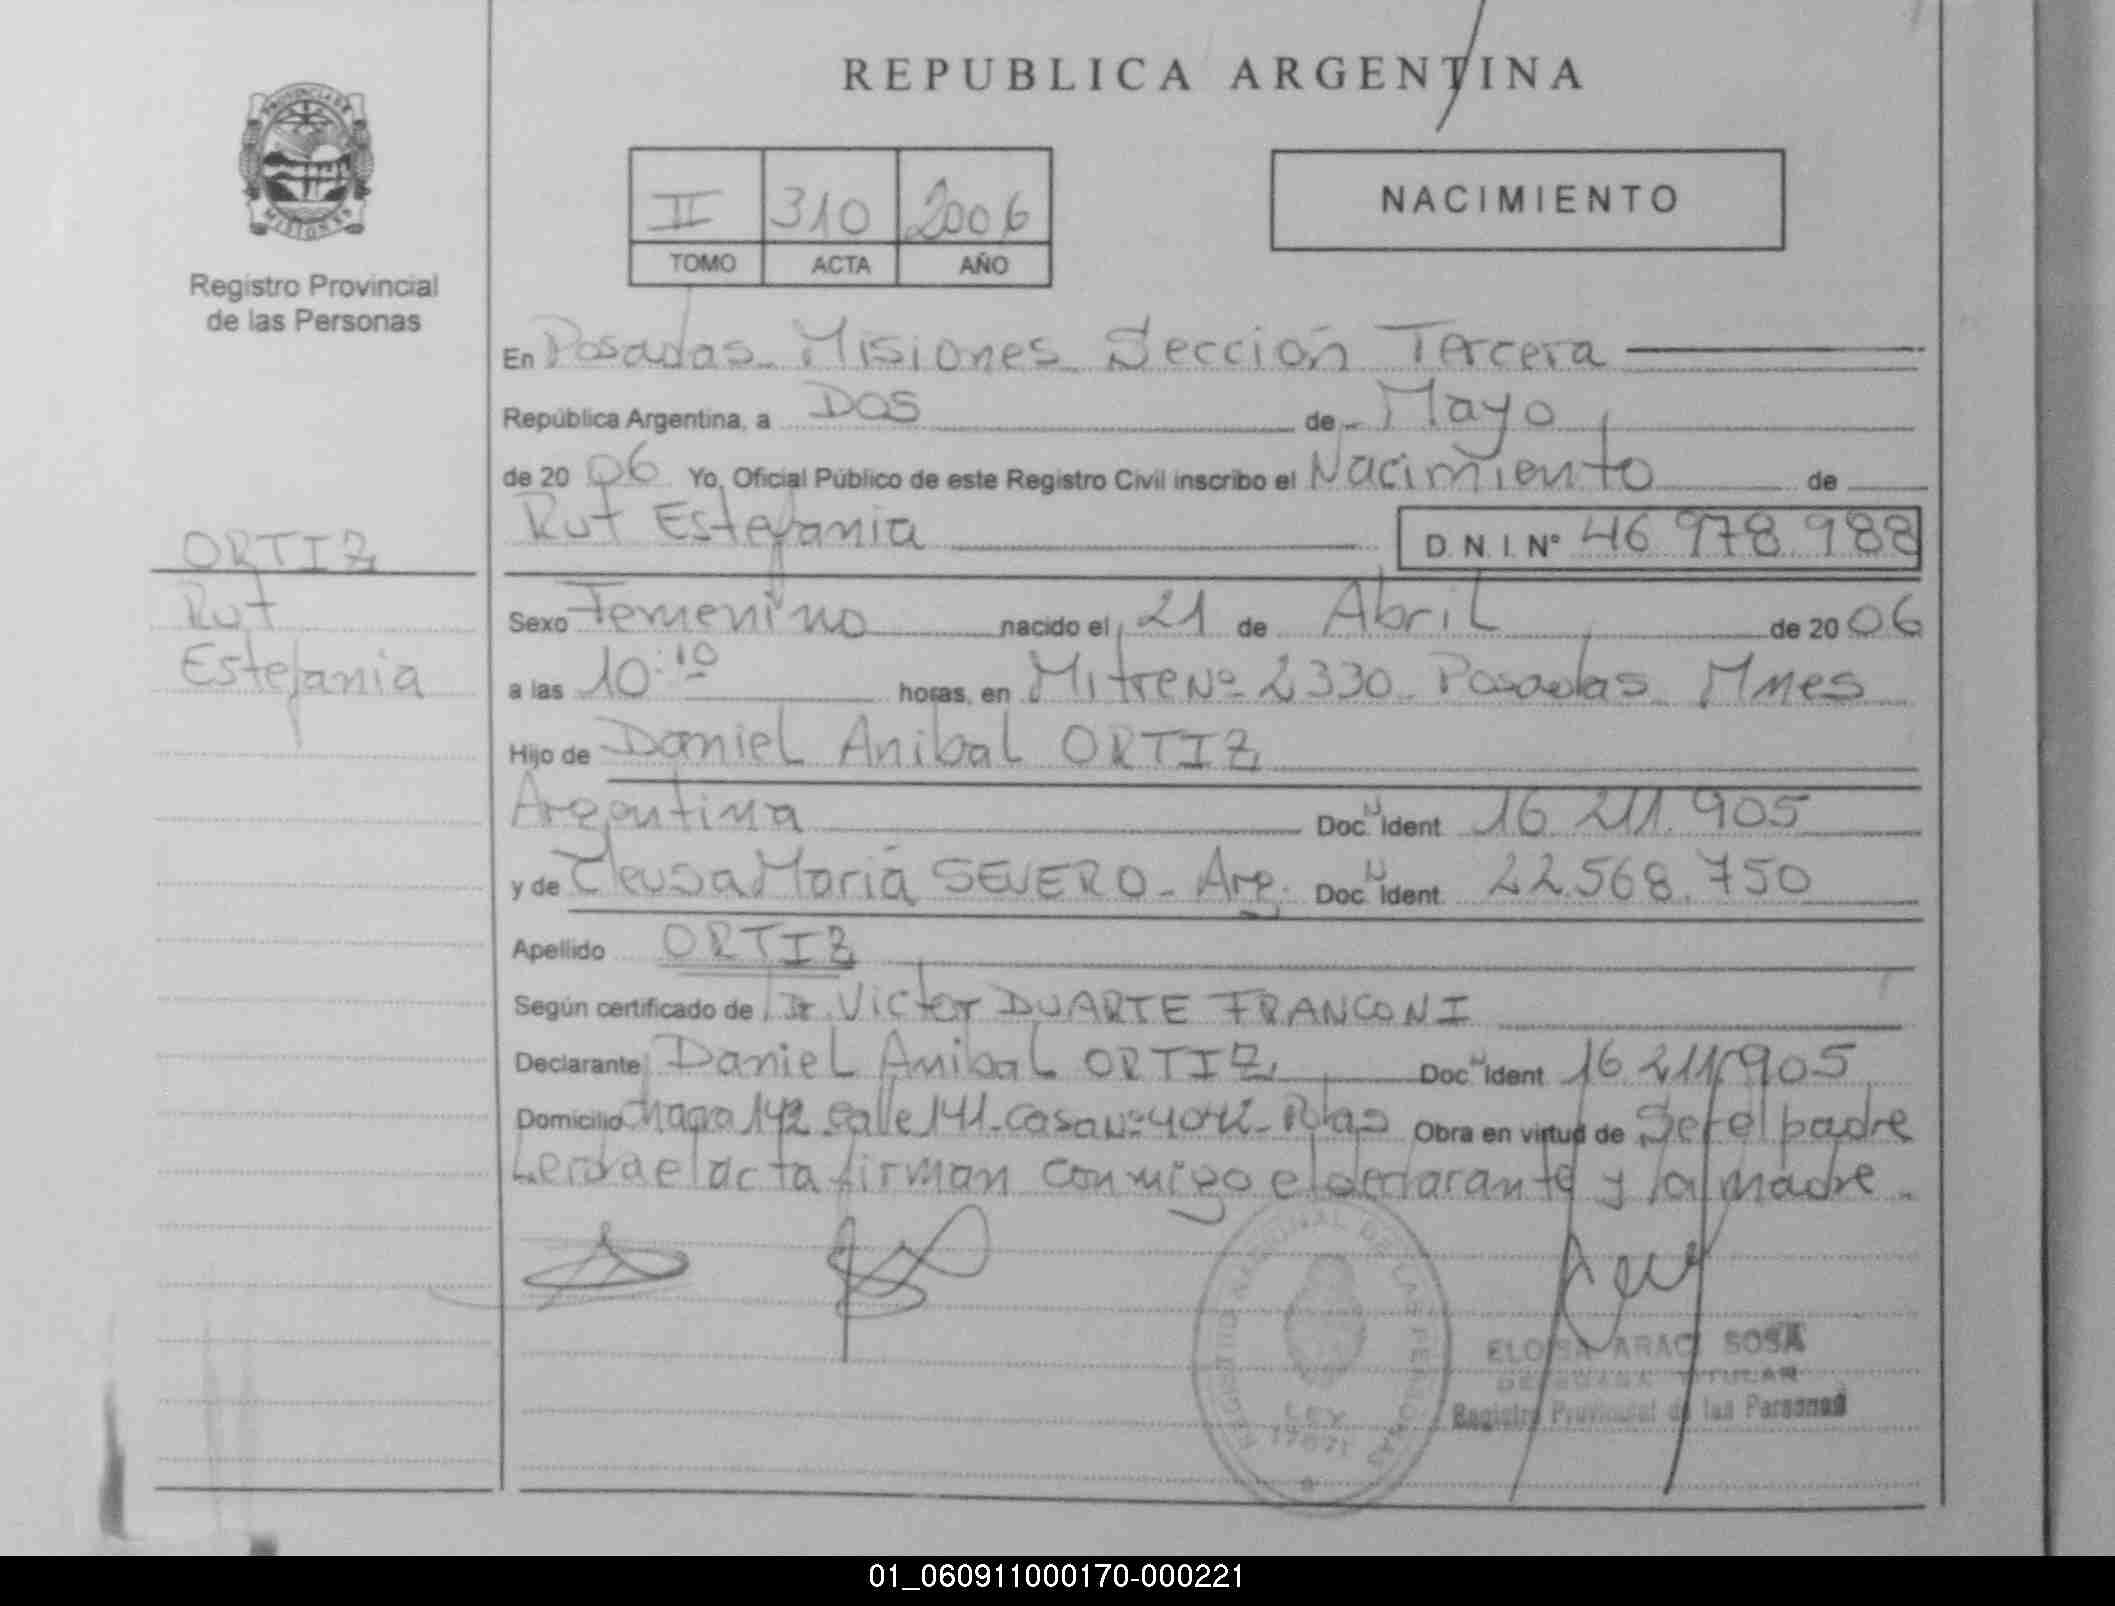 REPUBLICA ARGENTINA
PROVINCIA DE MISIONES
Registro Provincial
de las Personas
II 310 2006
TOMO ACTA AÑO
NACIMIENTO
En Posadas - Misiones Sección Tercera
República Argentina, a Dos de Mayo
de 20 06 Yo, Oficial Público de este Registro Civil inscribo el Nacimiento de
Rut Estefania D.N.I. Nº 46.978.988
ORTIZ
Rut
Estefania
Sexo Femenino nacido el 21 de Abril de 20 06
a las 10:10 horas, en Mitre Nº 2330 - Posadas - Mnes
Hijo de Daniel Anibal ORTIZ
Argentina Doc. N Ident 16.211.905
y de Cleusa Maria SEVERO - Arg. Doc. N Ident. 22.568.750
Apellido ORTIZ
Según certificado de Dr. Victor DUARTE FRANCONI
Declarante Daniel Anibal ORTIZ Doc N Ident 16.211.905
Domicilio 142 calle 141 - casa Nº Obra en virtud de Ser el padre
Leida el acta firman conmigo el declarante y la madre.
REGISTRO NACIONAL DE LAS PERSONAS
LEY
17671
SOSA
TITULAR
Registro Provincial de las Personas
01_060911000170-000221